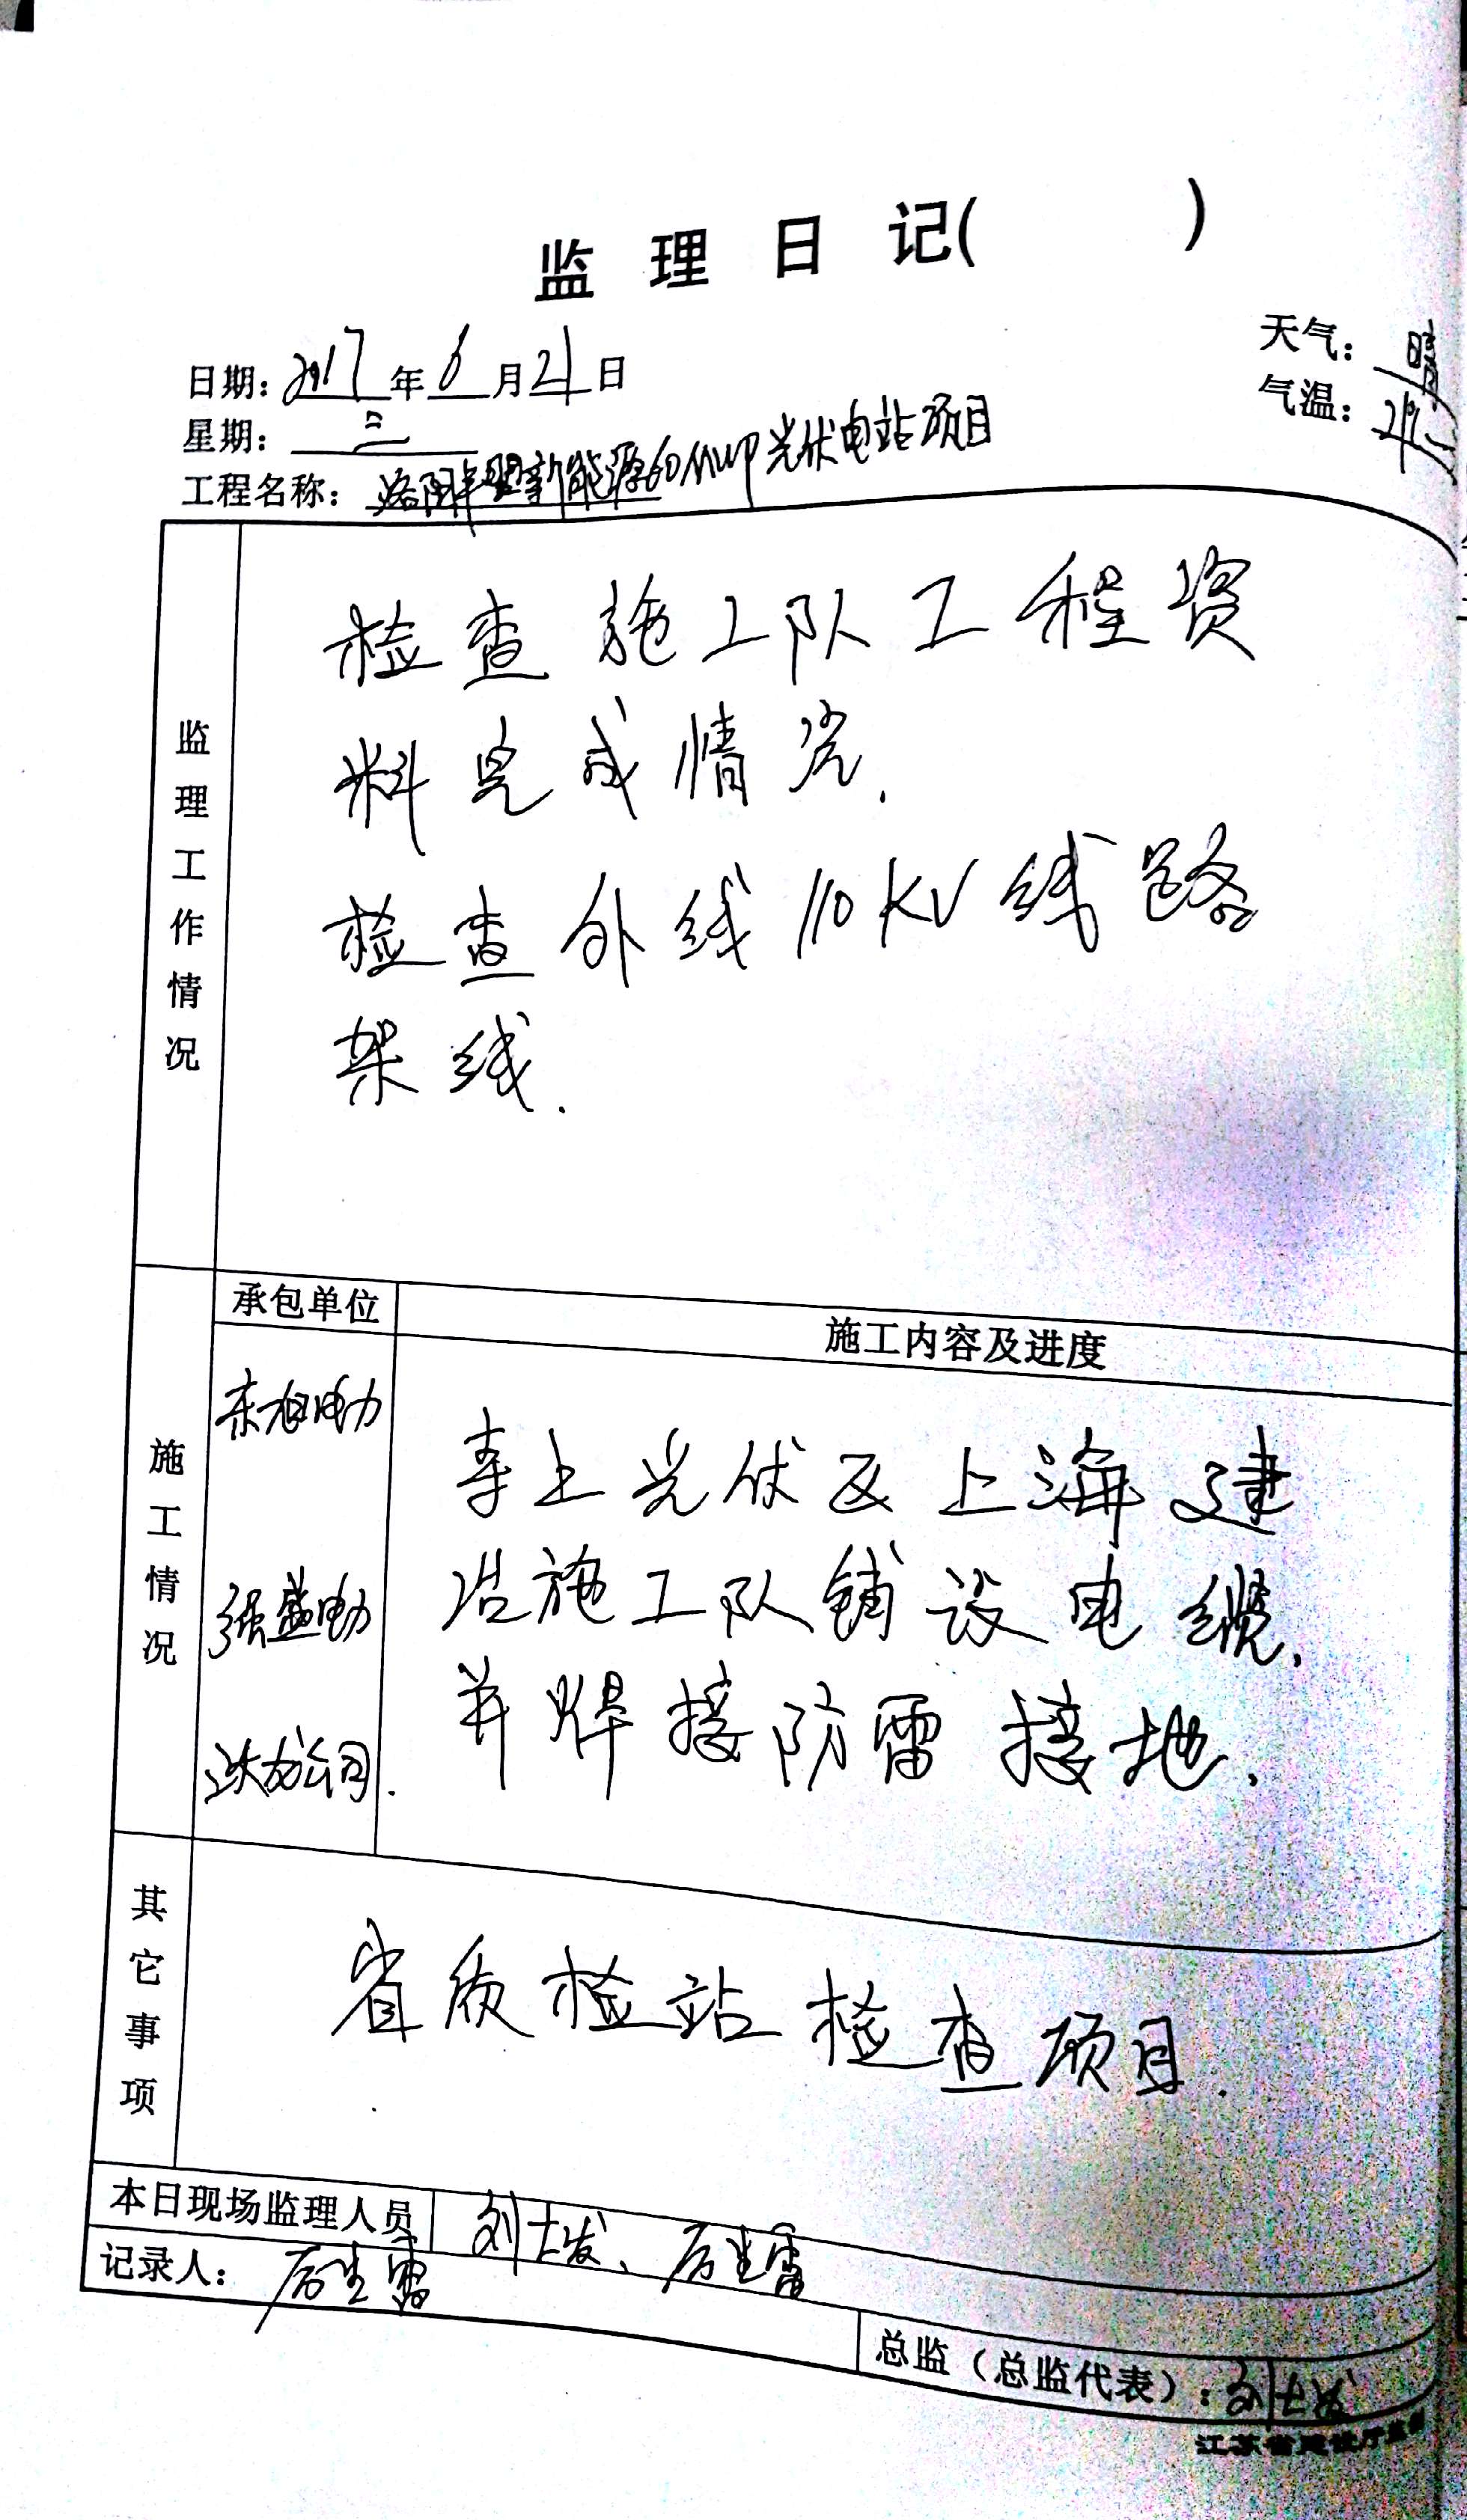 监理日记( )
天气: 晴
日期: 2017年6月21日
气温:
星期: 三
工程名称: 洛阳 新能源60MWP光伏电站项目
监理工作情况
检查施工队工程资
料完成情况.
检查外线110KV线路
架线.
施工情况
承包单位
施工内容及进度
东旭电力
强盛电力
公司.
光伏及上海建
浩施工队铺设电缆.
并焊接防雷接地.
其它事项
省质检站检查项目.
本日现场监理人员 刘士发、厉生雷
记录人: 厉生雷
总监(总监代表): 刘士发
江苏省建设厅监制